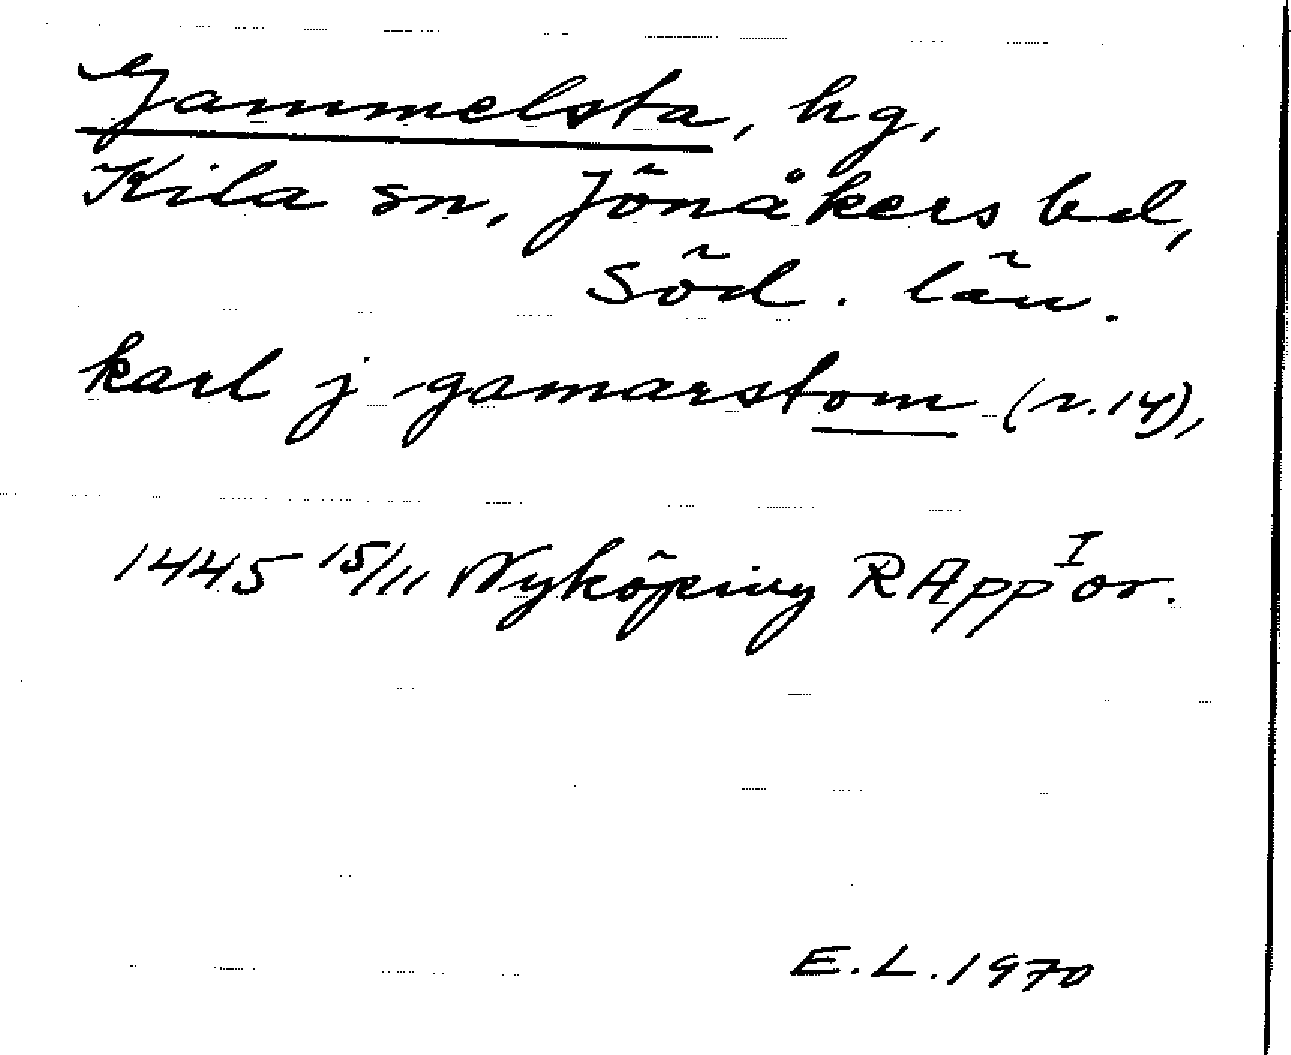 Gammelsta, hg,
Kila sn, Jönåkers hd,
Söd. län.
karl j gamarstom (r. 14),
1445 15/11 Nyköping RApp I or.
E.L. 1970